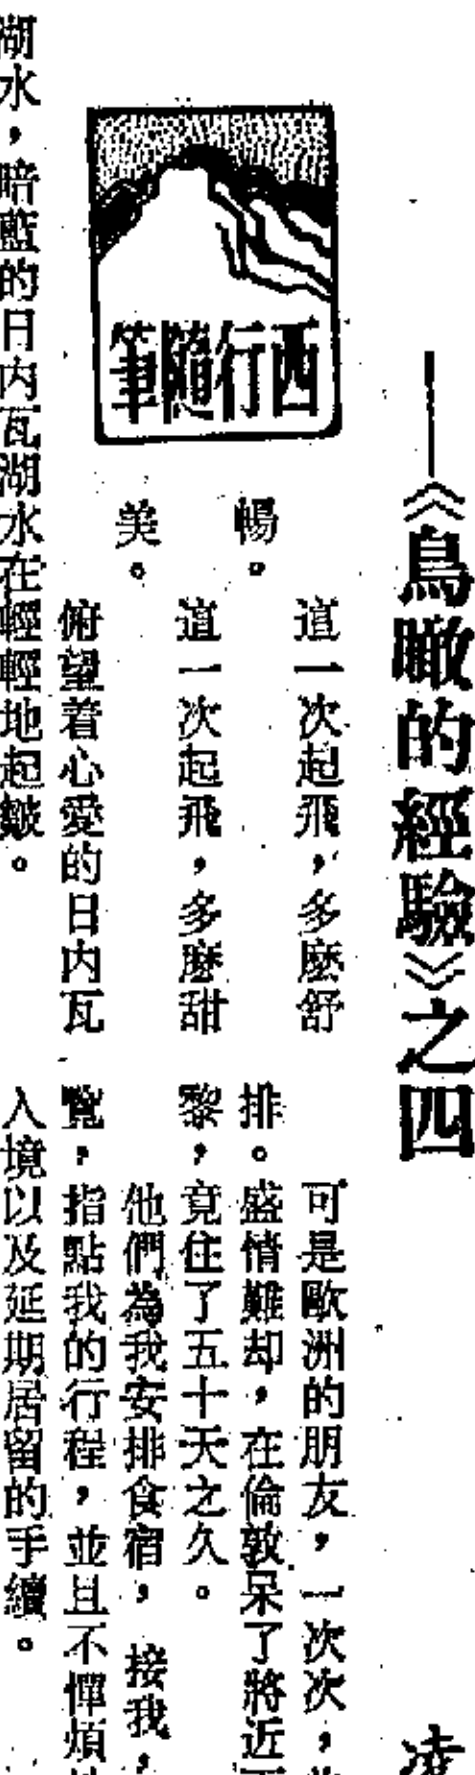 ——《鳥瞰的經驗》之四
凌
西行隨筆
這一次起飛，多麽舒
暢。
這一次起飛，多麽甜
美。
俯望着心愛的日内瓦
湖水，暗藍的日内瓦湖水在輕輕地起皺。
可是歐洲的朋友，一次次，
排。盛情難却，在倫敦呆了將近
黎，竟住了五十天之久。
他們為我安排食宿，接我，
覽，指點我的行程，並且不憚煩
入境以及延期居留的手續。